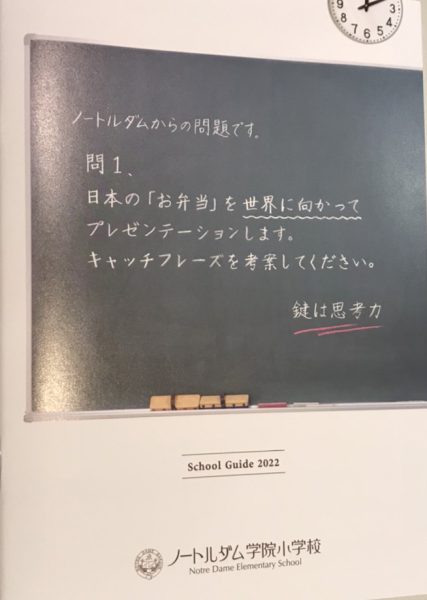 3
4
5
6
7
8
9
ノートルダムからの問題です。
問1、
日本の「お弁当」を世界に向かって
プレゼンテーションします。
キャッチフレーズを考案してください。
鍵は思考力
School Guide 2022
ノートルダム学院小学校
Notre Dame Elementary School